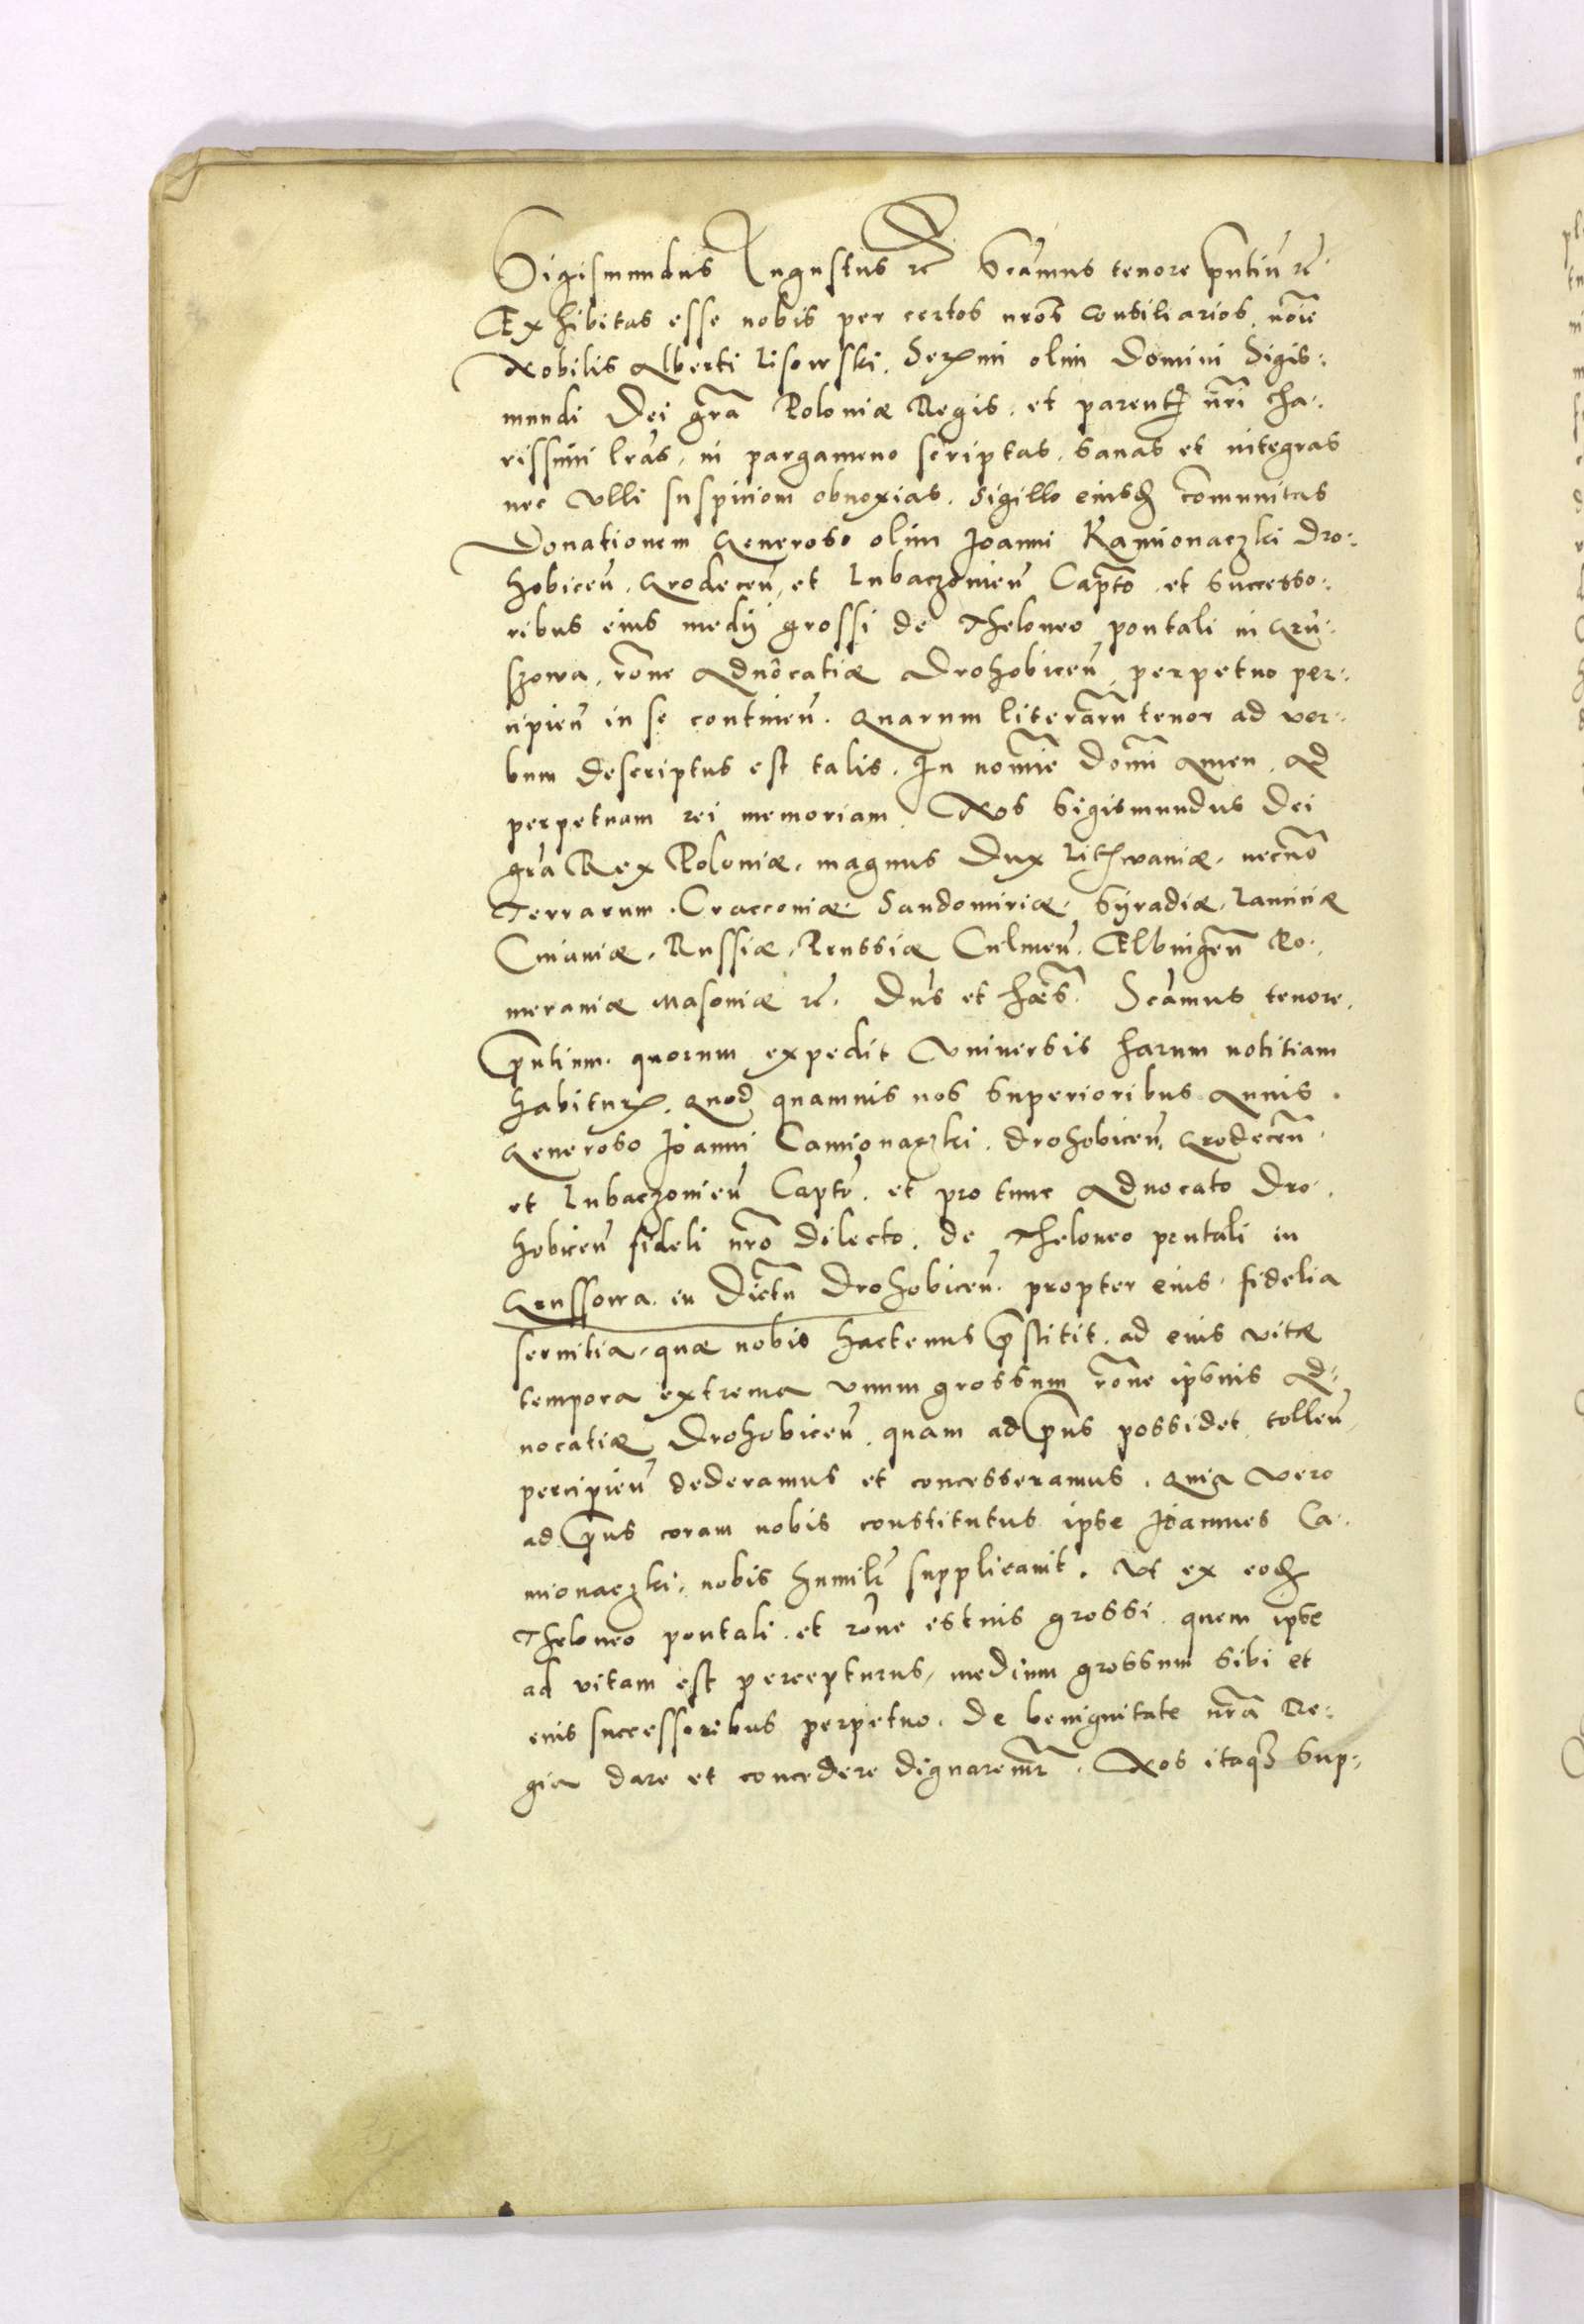 Sigismundus Augustus rc Scamus tenore pntiu rc
Exhibitas esse nobis per certos nros Consiliarios, noie
Nobilis Alberti Lisowski, Sermi olim Domini Sigis:
mundi Dei gra Poloniæ Regis, et parent nri cha:
rissimi lras, in pargameno scriptas, sanas et integras
nec vlli suspicioni obnoxias, sigillo eiusd comunitas
Donationem Generoso olim Joanni Kamionaczki Dro:
hobiceñ, Grodeceñ, et Lubaczovieñ Capto, et successo:
ribus eius medij grossi de Theloneo pontali in Gru:
szowa, rone Aduocatiæ Drohobiceñ, perpetuo per:
cipieñ in se contineñ. Quarum literaru tenor ad ver:
bum descriptus est talis. In nomie Domi Amen. Ad
perpetuam rei memoriam. Nos Sigismundus Dei
gra Rex Poloniæ, magnus Dux Lithwaniæ, necno
Terrarum. Cracconiæ, Sandomiriæ, Syradiæ, Lanciciæ
Cuiauiæ, Russiæ, Prussiæ Culmeñ. Elbingeñ Po:
meraniæ Masouiæ rc. Dus et hæs. Scamus tenore.
pntium. quorum expedit Vniuersis harum notitiam
habitur. Quod quamuis nos superioribus Annis.
Generoso Joanni Camionaczki. Drohobiceñ, Grodeceñ.
et Lubaczovieñ Capto. et pro tunc Aduocato Dro:
hobiceñ fideli nro dilecto. de Theloneo pontali in
Grussowa. in Dictu Drohobiceñ. propter eius fidelia
seruitia, quæ nobis hactenus pstitit. ad eius vitæ
tempora extrema vnum grossum rone ipsius Ad:
uocatiæ Drohobiceñ, quam ad pns possidet, tolleñ
percipieñ dederamus et concesseramus. Quia vero
ad pns coram nobis constitutus ipse Joannes Ca:
mionaczki, nobis humilr supplicauit. Vt ex eod
Theloneo pontali. et rone istius grossi. quem ipse
ad vitam est percepturus, medium grossum sibi et
eius successoribus perpetuo. de benignitate nra Re:
gia dare et concedere dignaremr. Nos itaq Sup: